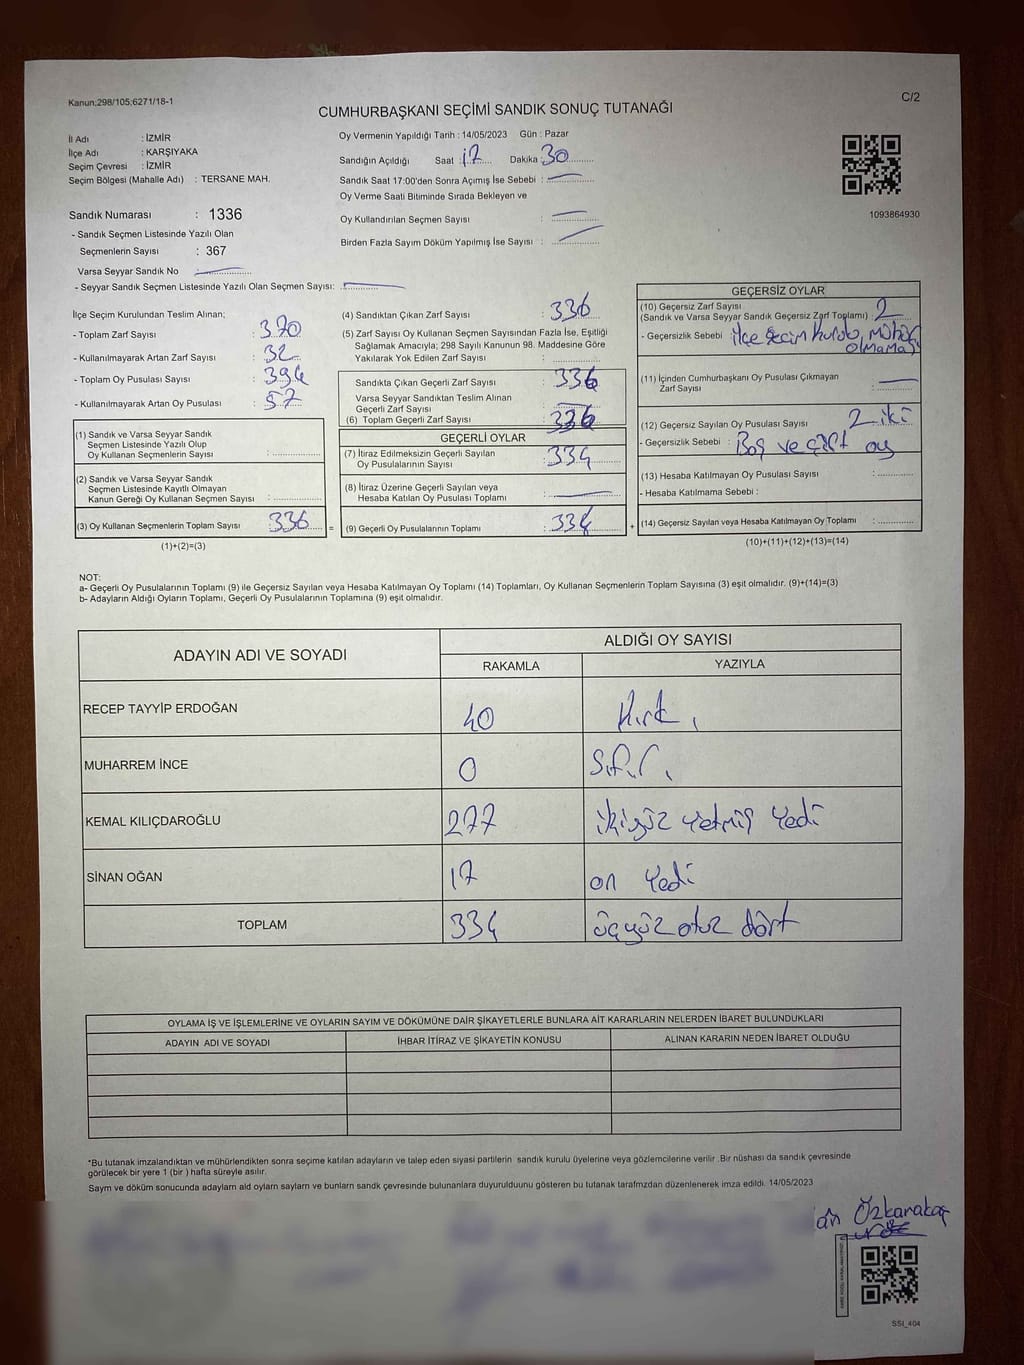 Kanun:298/105;6271/18-1
C/2
CUMHURBAŞKANI SEÇİMİ SANDIK SONUÇ TUTANAĞI
İl Adı : İZMİR
İlçe Adı : KARŞIYAKA
Seçim Çevresi : İZMİR
Seçim Bölgesi (Mahalle Adı) : TERSANE MAH.
Sandık Numarası : 1336
- Sandık Seçmen Listesinde Yazılı Olan
Seçmenlerin Sayısı : 367
Varsa Seyyar Sandık No
- Seyyar Sandık Seçmen Listesinde Yazılı Olan Seçmen Sayısı:
Oy Vermenin Yapıldığı Tarih : 14/05/2023 Gün : Pazar
Sandığın Açıldığı Saat : 17 Dakika : 30
Sandık Saat 17:00'den Sonra Açımış İse Sebebi :
Oy Verme Saati Bitiminde Sırada Bekleyen ve
Oy Kullandırılan Seçmen Sayısı :
Birden Fazla Sayım Döküm Yapılmış İse Sayısı :
1093864930
İlçe Seçim Kurulundan Teslim Alınan;
- Toplam Zarf Sayısı : 370
- Kullanılmayarak Artan Zarf Sayısı : 32
- Toplam Oy Pusulası Sayısı : 394
- Kullanılmayarak Artan Oy Pusulası : 57
(1) Sandık ve Varsa Seyyar Sandık
Seçmen Listesinde Yazılı Olup
Oy Kullanan Seçmenlerin Sayısı :
(2) Sandık ve Varsa Seyyar Sandık
Seçmen Listesinde Kayıtlı Olmayan
Kanun Gereği Oy Kullanan Seçmen Sayısı :
(3) Oy Kullanan Seçmenlerin Toplam Sayısı : 336 =
(1)+(2)=(3)
(4) Sandıktan Çıkan Zarf Sayısı : 336
(5) Zarf Sayısı Oy Kullanan Seçmen Sayısından Fazla İse, Eşitliği
Sağlamak Amacıyla; 298 Sayılı Kanunun 98. Maddesine Göre
Yakılarak Yok Edilen Zarf Sayısı :
Sandıkta Çıkan Geçerli Zarf Sayısı : 336
Varsa Seyyar Sandıktan Teslim Alınan
Geçerli Zarf Sayısı :
(6) Toplam Geçerli Zarf Sayısı : 336
GEÇERLİ OYLAR
(7) İtiraz Edilmeksizin Geçerli Sayılan
Oy Pusulalarının Sayısı : 334
(8) İtiraz Üzerine Geçerli Sayılan veya
Hesaba Katılan Oy Pusulası Toplamı :
(9) Geçerli Oy Pusulalarının Toplamı : 334 +
GEÇERSİZ OYLAR
(10) Geçersiz Zarf Sayısı
(Sandık ve Varsa Seyyar Sandık Geçersiz Zarf Toplamı) : 2
- Geçersizlik Sebebi : ilçe seçim kurulu mühür
olmaması
(11) İçinden Cumhurbaşkanı Oy Pusulası Çıkmayan
Zarf Sayısı :
(12) Geçersiz Sayılan Oy Pusulası Sayısı : 2 iki
- Geçersizlik Sebebi : Boş ve çift oy
(13) Hesaba Katılmayan Oy Pusulası Sayısı :
- Hesaba Katılmama Sebebi :
(14) Geçersiz Sayılan veya Hesaba Katılmayan Oy Toplamı :
(10)+(11)+(12)+(13)=(14)
NOT:
a- Geçerli Oy Pusulalarının Toplamı (9) ile Geçersiz Sayılan veya Hesaba Katılmayan Oy Toplamı (14) Toplamları, Oy Kullanan Seçmenlerin Toplam Sayısına (3) eşit olmalıdır. (9)+(14)=(3)
b- Adayların Aldığı Oyların Toplamı, Geçerli Oy Pusulalarının Toplamına (9) eşit olmalıdır.
ADAYIN ADI VE SOYADI
ALDIĞI OY SAYISI
RAKAMLA YAZIYLA
RECEP TAYYİP ERDOĞAN 40 Kırk
MUHARREM İNCE 0 Sıfır
KEMAL KILIÇDAROĞLU 277 ikiyüz yetmiş yedi
SİNAN OĞAN 17 on yedi
TOPLAM 334 üçyüz otuz dört
OYLAMA İŞ VE İŞLEMLERİNE VE OYLARIN SAYIM VE DÖKÜMÜNE DAİR ŞİKAYETLERLE BUNLARA AİT KARARLARIN NELERDEN İBARET BULUNDUKLARI
ADAYIN ADI VE SOYADI İHBAR İTİRAZ VE ŞİKAYETİN KONUSU ALINAN KARARIN NEDEN İBARET OLDUĞU
*Bu tutanak imzalandıktan ve mühürlendikten sonra seçime katılan adayların ve talep eden siyasi partilerin sandık kurulu üyelerine veya gözlemcilerine verilir .Bir nüshası da sandık çevresinde
görülecek bir yere 1 (bir ) hafta süreyle asılır.
Saym ve döküm sonucunda adaylam ald oylarn saylarn ve bunlarn sandk çevresinde bulunanlara duyurulduunu gösteren bu tutanak tarafmzdan düzenlenerek imza edildi. 14/05/2023
an Özkarakaş
SSI_404